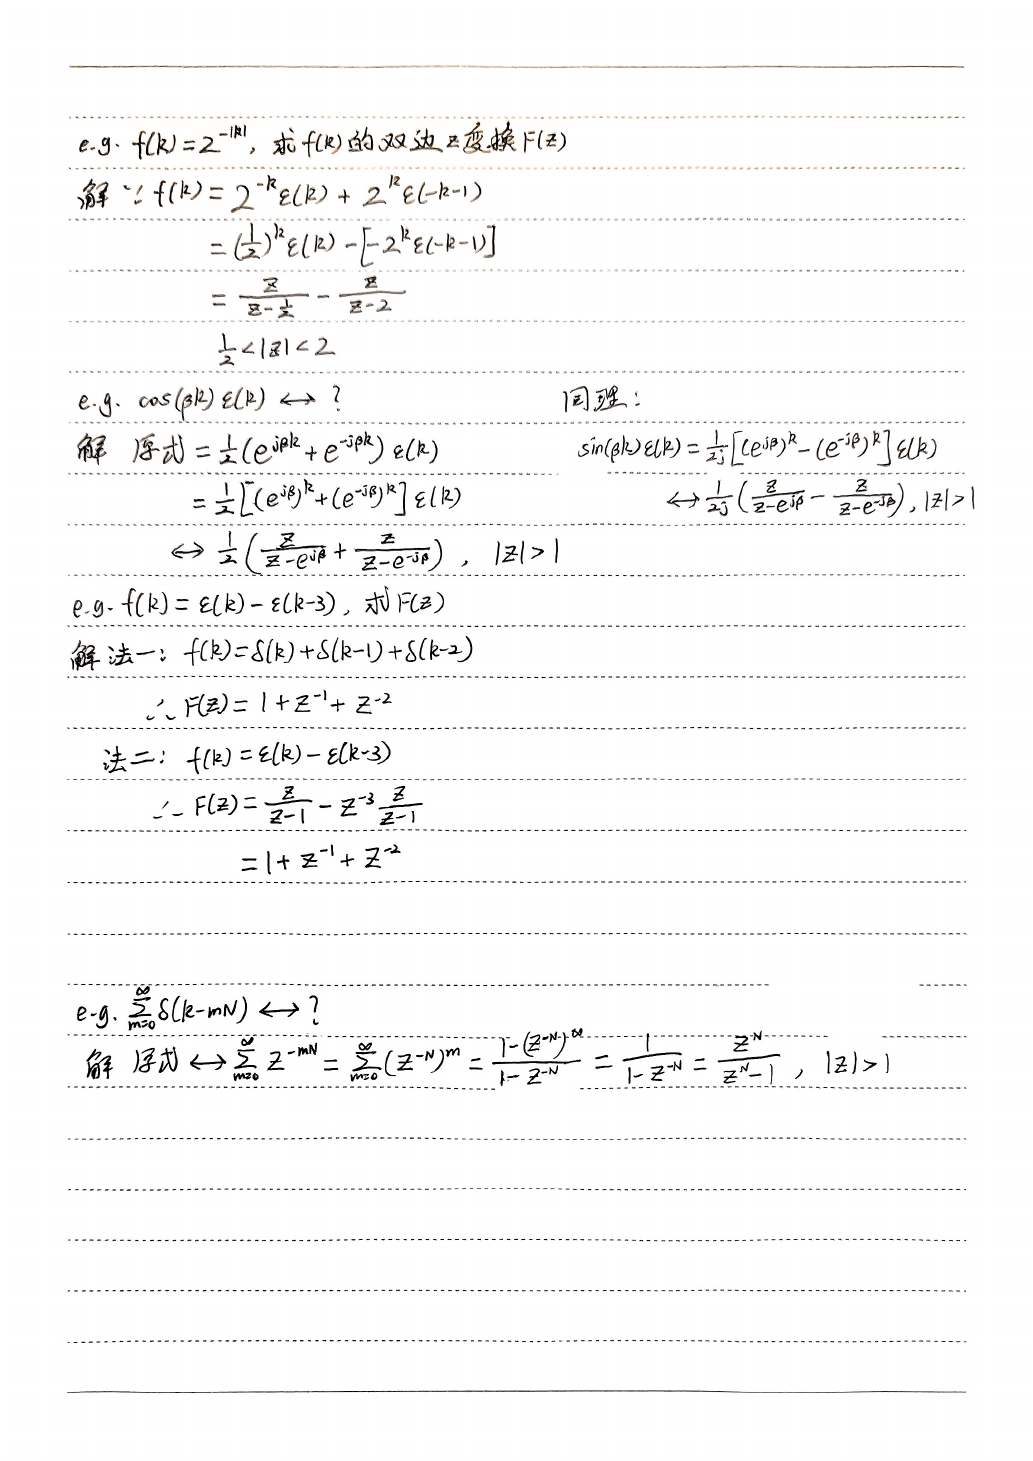 e.g. f(k)=2^{-|k|}, 求f(k)的双边z变换F(z)
解 ∵ f(k) = 2^{-k}ε(k) + 2^{k}ε(-k-1)
= (1/2)^k ε(k) - [-2^k ε(-k-1)]
= z/(z-1/2) - z/(z-2)
1/2 < |z| < 2
e.g. cos(βk)ε(k) ↔ ?
解 原式 = 1/2(e^{jβk} + e^{-jβk}) ε(k)
= 1/2[(e^{jβ})^k + (e^{-jβ})^k] ε(k)
↔ 1/2(z/(z-e^{jβ}) + z/(z-e^{-jβ})), |z|>1
同理:
sin(βk)ε(k) = 1/2j [(e^{jβ})^k - (e^{-jβ})^k] ε(k)
↔ 1/2j (z/(z-e^{jβ}) - z/(z-e^{-jβ})), |z|>1
e.g. f(k) = ε(k) - ε(k-3), 求F(z)
解 法一: f(k) = δ(k) + δ(k-1) + δ(k-2)
∴ F(z) = 1 + z^{-1} + z^{-2}
法二: f(k) = ε(k) - ε(k-3)
∴ F(z) = z/(z-1) - z^{-3} z/(z-1)
= 1 + z^{-1} + z^{-2}
e.g. ∑_{m=0}^{∞} δ(k-mN) ↔ ?
解 原式 ↔ ∑_{m=0}^{∞} z^{-mN} = ∑_{m=0}^{∞} (z^{-N})^m = (1-(z^{-N})^∞)/(1-z^{-N}) = 1/(1-z^{-N}) = z^N/(z^N-1), |z|>1